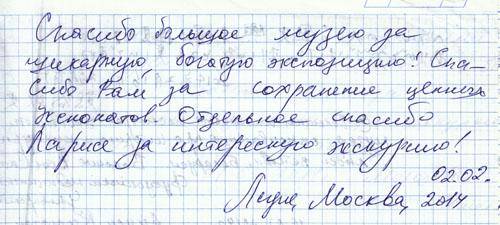 Спасибо большое музею за
шикарную, богатую экспозицию! Спа-
сибо Вам за сохранение ценных
экспонатов. Отдельное спасибо
Ларисе за интересную экскурсию!
02.02.
Москва, 2014